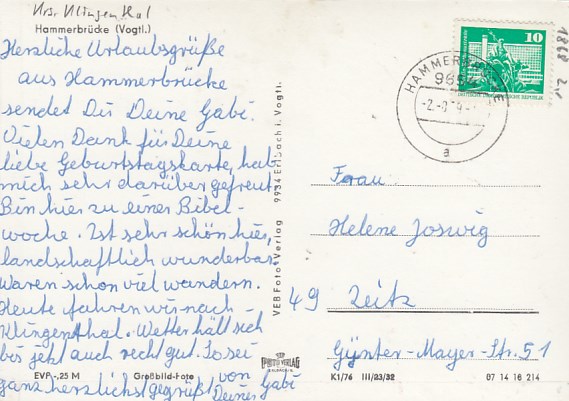 Krs. Klingenthal
Hammerbrücke (Vogtl.)
Herzliche Urlaubsgrüße
aus Hammerbrücke
sendet Dir Deine Gabi.
Vielen Dank für Deine
liebe Geburtstagskarte, hab
mich sehr darüber gefreut
Bin hier zu einer Bibel-
woche. Ist sehr schön hier,
landschaftlich wunderbar.
Waren schon viel wandern.
Heute fahren wir nach
Klingenthal. Wetter hält sich
bis jetzt auch recht gut. So sei
ganz herzlichst gegrüßt von
Deiner Gabi
EVP -,25 M
Großbild-Foto
VEB Foto-Verlag 9934 Erlbach i. Vogtl.
FOTO VERLAG
ERLBACH
10
DEUTSCHE DEMOKRATISCHE REPUBLIK
1868
HAMMERBRÜCKE
9654
a
Frau
Helene Joswig
49 Zeitz
Günter-Mayer-Str. 51
K1/76 III/23/32
07 14 16 214